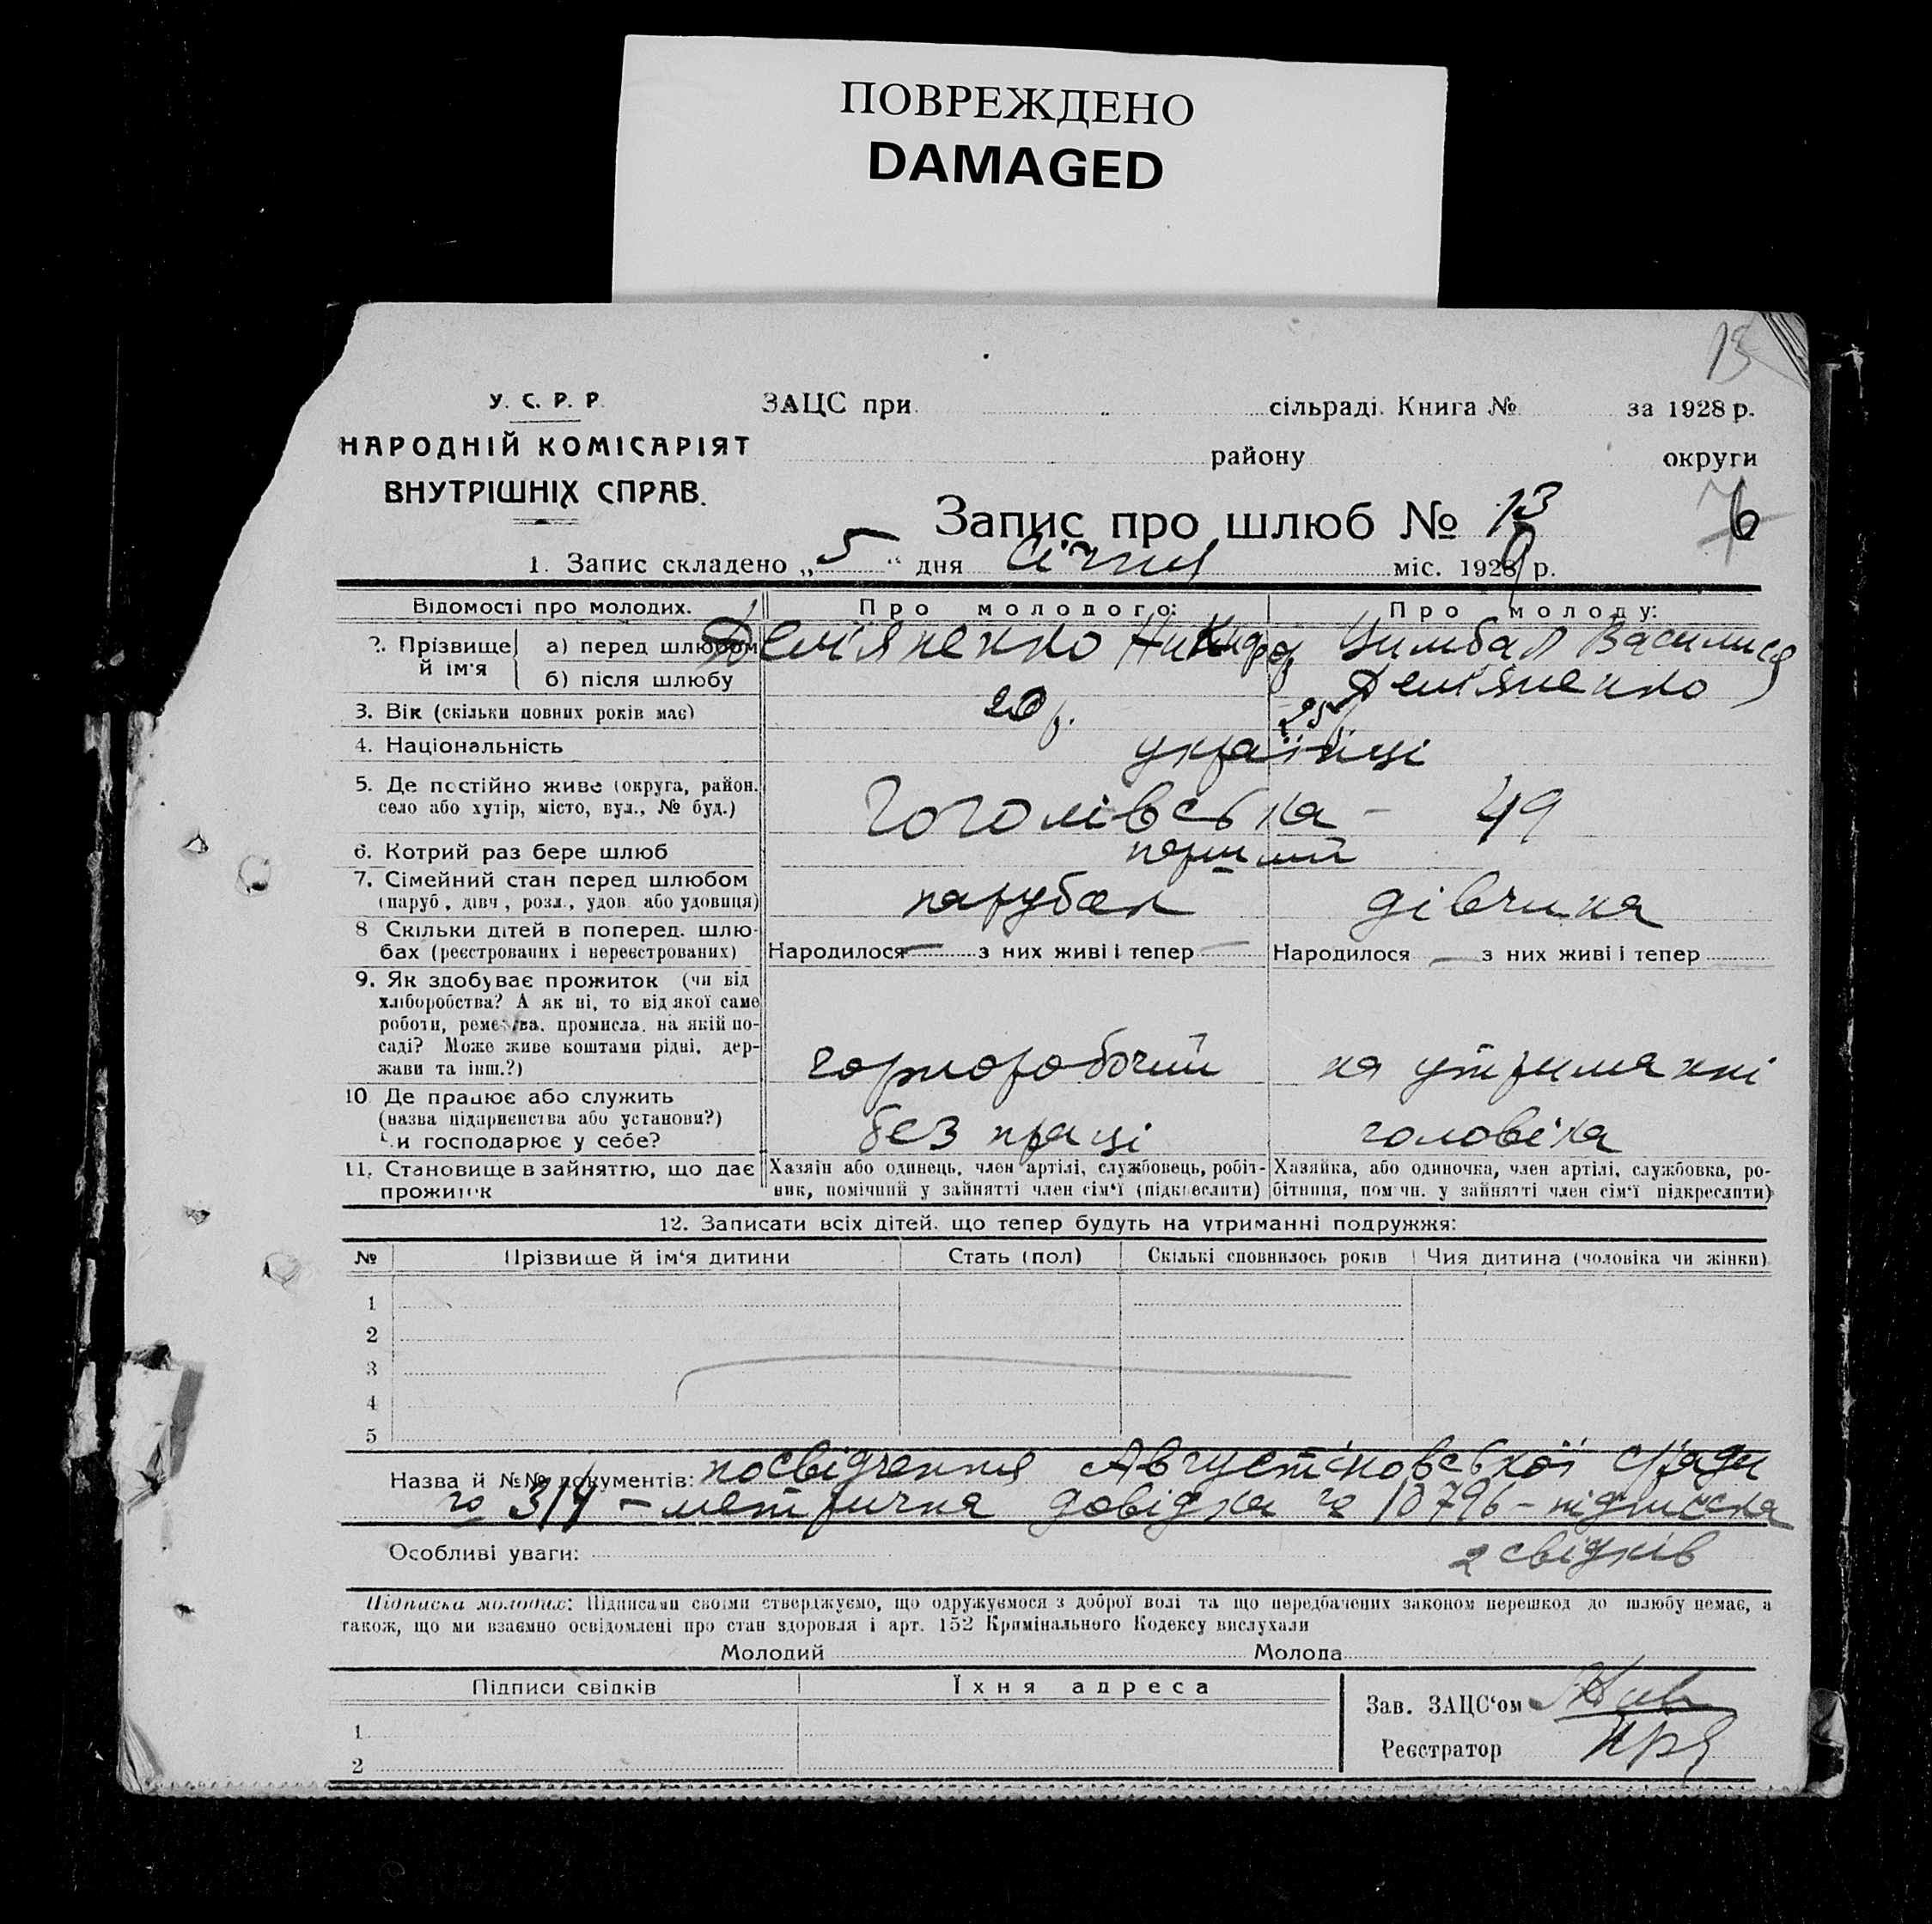 ПОВРЕЖДЕНО
DAMAGED
13
У. С. Р. Р.
НАРОДНІЙ КОМІСАРІЯТ
ВНУТРІШНІХ СПРАВ.
ЗАЦС при сільраді. Книга № за 1928 р.
району округи
Запис про шлюб № 13
6
1. Запис складено „5“ дня січня міс. 1929 р.
Відомості про молодих. Про молодого: Про молоду:
2. Прізвище й ім'я
а) перед шлюбом Дем'яненко Цимбал Василиса
б) після шлюбу Дем'яненко
3. Вік (скільки повних років має) 20 р. 25
4. Національність українці
5. Де постійно живе (округа, район, село або хутір, місто, вул., № буд.) Гоголівська - 49
6. Котрий раз бере шлюб перший
7. Сімейний стан перед шлюбом (паруб., дівч., розл., удов. або удовиця) парубок дівчина
8 Скільки дітей в поперед. шлюбах (реєстрованих і нереєстрованих) Народилося — з них живі і тепер — Народилося — з них живі і тепер
9. Як здобуває прожиток (чи від хліборобства? А як ні, то від якої саме роботи, ремества, промисла, на якій посаді? Може живе коштами рідні, держави та інш.?) чорноробочий на утриманні
10 Де працює або служить (назва підприємства або установи?) Чи господарює у себе? без праці чоловіка
11. Становище в зайняттю, що дає прожиток
Хазяїн або одинець, член артілі, службовець, робітник, помічний у зайнятті член сім'ї (підкреслити)
Хазяйка, або одиночка, член артілі, службовка, робітниця, помічн. у зайнятті член сім'ї підкреслити)
12. Записати всіх дітей, що тепер будуть на утриманні подружжя:
№ Прізвище й ім'я дитини Стать (пол) Скількі сповнилось років Чия дитина (чоловіка чи жінки)
1
2
3
4
5
Назва й №№ документів: посвідчення Августіновської с/ради
314 - метрична довідка 10796 - підписка
Особливі уваги: 2 свідків
Підписка молодих: Підписами своїми стверджуємо, що одружуємося з доброї волі та що передбачених законом перешкод до шлюбу немає, а
також, що ми взаємно освідомлені про стан здоровля і арт. 152 Кримінального Кодексу вислухали
Молодий Молода
Підписи свідків Їхня адреса
Зав. ЗАЦС'ом
1
Реєстратор
2